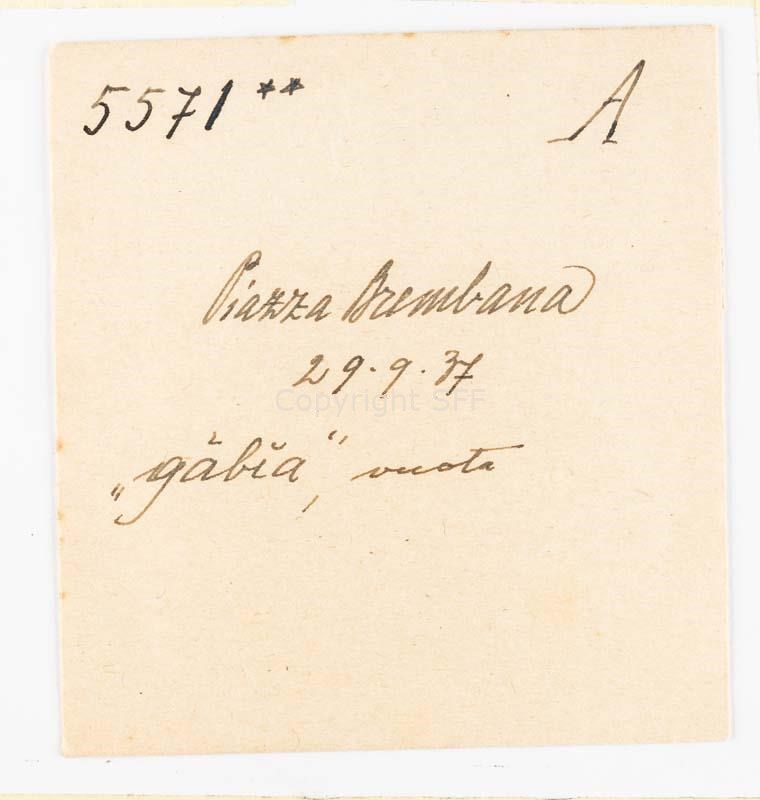 5571** A
Piazza Brembana
29.9.37
Copyright SFF
„gäbĭa“, vuota